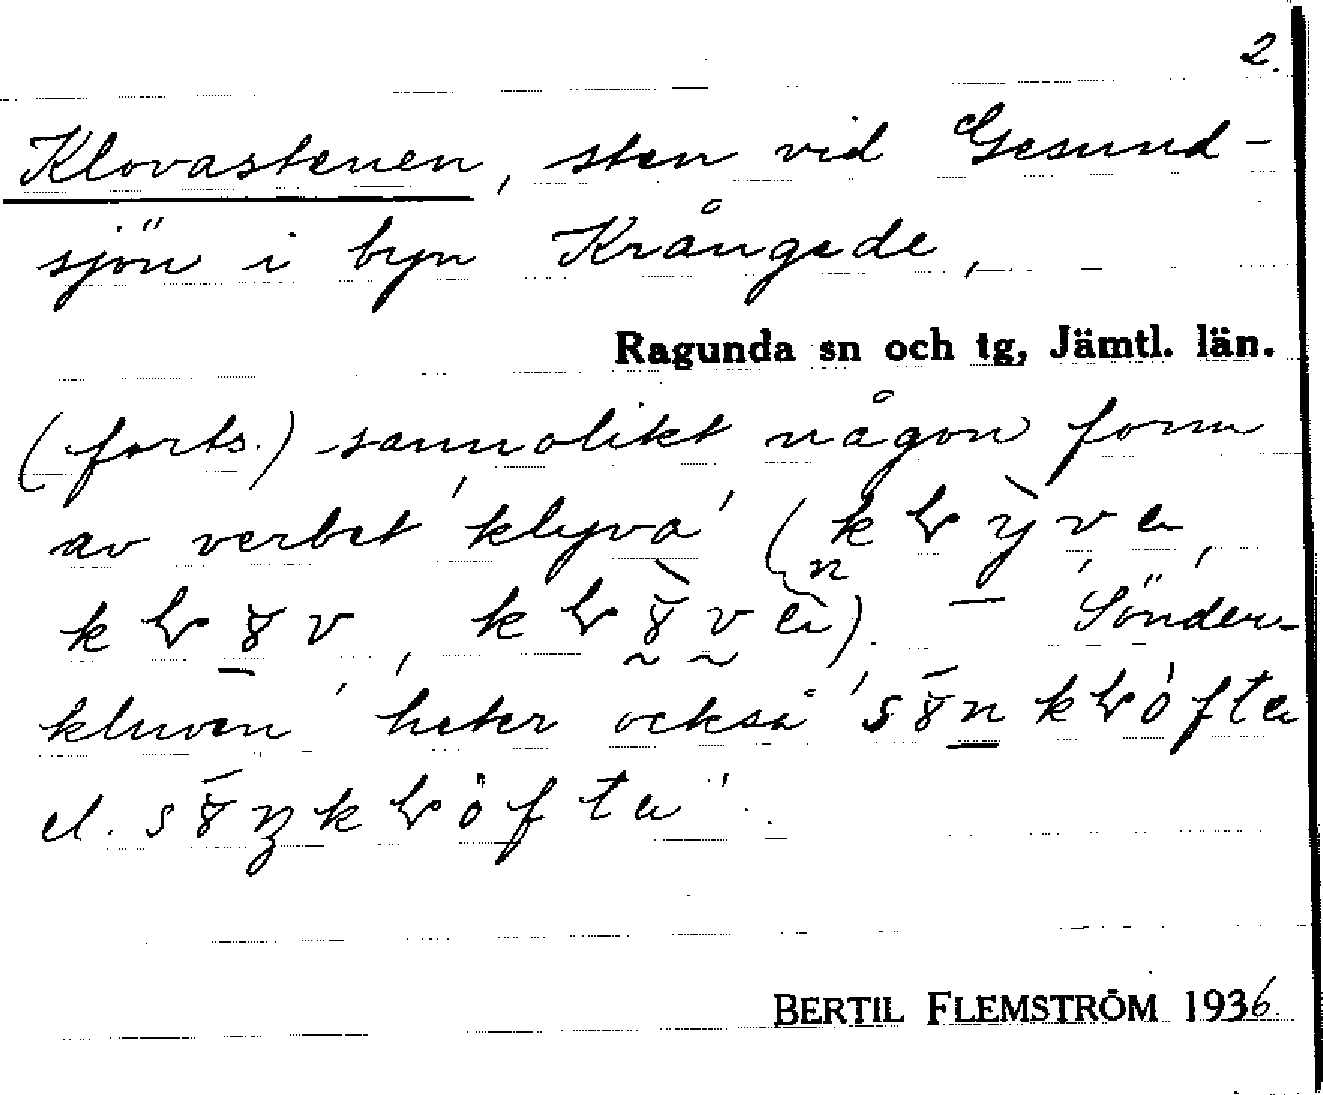 2.
Klovastenen, sten vid Gesund-
sjön i byn Krångede,
Ragunda sn och tg, Jämtl. län.
(forts.) sannolikt någon form
av verbet 'klyva'
— 'Sönder-
kluven' heter också
el.
BERTIL FLEMSTRÖM 1936.